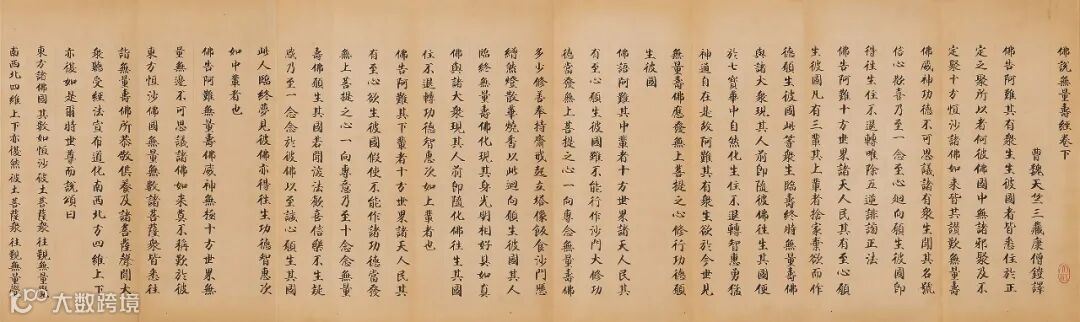 佛說無量壽經卷下
曹魏天竺三藏康僧鎧譯
佛告阿難其有衆生生彼國者皆悉住於正
定之聚所以者何彼佛國中無諸邪聚及不
定聚十方恒沙諸佛如來皆共讚歎無量壽
佛威神功德不可思議諸有衆生聞其名號
信心歡喜乃至一念至心迴向願生彼國即
得往生住不退轉唯除五逆誹謗正法
佛告阿難十方世界諸天人民其有至心願
生彼國凡有三輩其上輩者捨家棄欲而作
德願生彼國此等衆生臨壽終時無量壽佛
與諸大衆現其人前即隨彼佛往生其國便
於七寶華中自然化生住不退轉智惠勇猛
神通自在是故阿難其有衆生欲於今世見
無量壽佛應發無上菩提之心修行功德願
生彼國
佛語阿難其中輩者十方世界諸天人民其
有至心願生彼國雖不能行作沙門大修功
德當發無上菩提之心一向專念無量壽佛
多少修善奉持齋戒起立塔像飯食沙門懸
繒然燈散華燒香以此迴向願生彼國其人
臨終無量壽佛化現其身光明相好具如真
佛與諸大衆現其人前即隨化佛往生其國
住不退轉功德智惠次如上輩者也
佛告阿難其下輩者十方世界諸天人民其
有至心欲生彼國假使不能作諸功德當發
無上菩提之心一向專意乃至十念念無量
壽佛願生其國若聞深法歡喜信樂不生疑
惑乃至一念念於彼佛以至誠心願生其國
此人臨終夢見彼佛亦得往生功德智惠次
如中輩者也
佛告阿難無量壽佛威神無極十方世界無
量無邊不可思議諸佛如來莫不稱歎於彼
東方恒沙佛國無量無數諸菩薩衆皆悉往
詣無量壽佛所恭敬供養及諸菩薩聲聞大
衆聽受經法宣布道化南西北方四維上下
亦復如是爾時世尊而說頌曰
東方諸佛國 其數如恒沙 彼土菩薩衆 往覲無量覺
南西北四維 上下亦復然 彼土菩薩衆 往覲無量覺
大数跨境